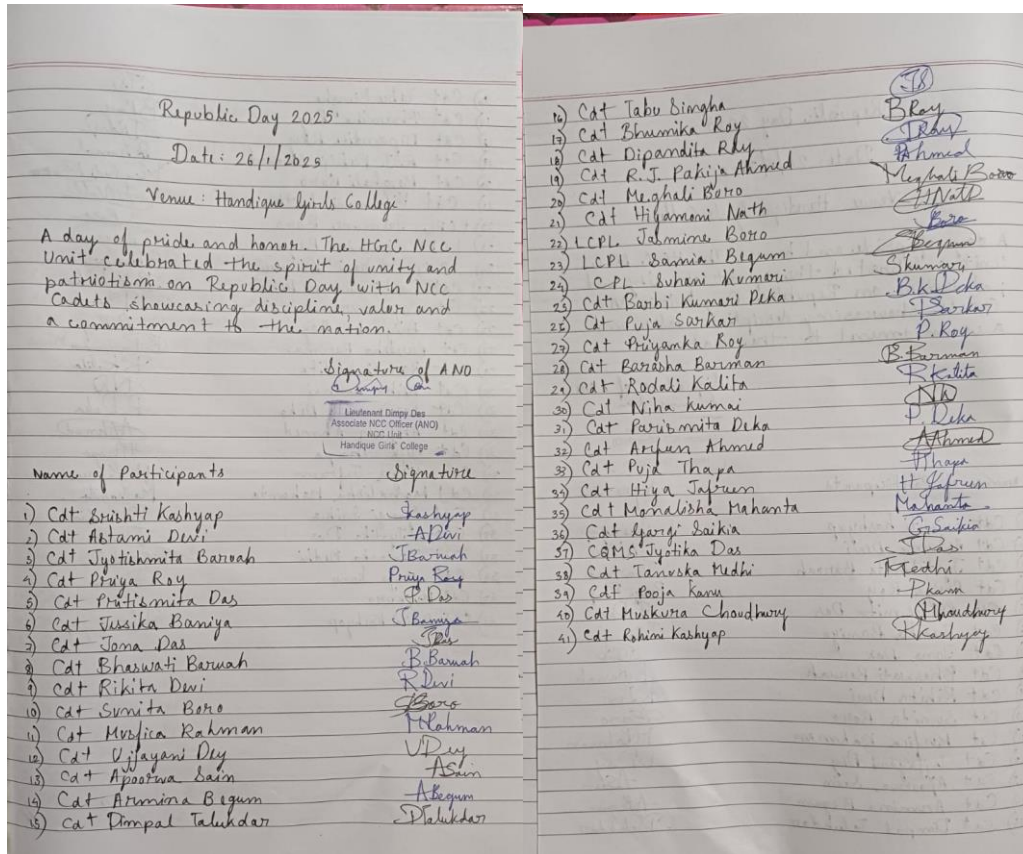 Republic Day 2025
Date: 26/1/2025
Venue: Handique Girls College
A day of pride and honor. The HGC NCC
Unit celebrated the spirit of unity and
patriotism on Republic Day with NCC
Cadets, showcasing discipline, valor and
a commitment to the nation.
Signature of ANO
Lieutenant Dimpy Das
Associate NCC Officer (ANO)
NCC Unit
Handique Girls' College
Name of Participants Signature
1) Cdt Srishti Kashyap Kashyap
2) Cdt Astami Devi ADevi
3) Cdt Jyotishmita Baruah JBaruah
4) Cdt Priya Roy Priya Roy
5) Cdt Pritismita Das P. Das
6) Cdt Jessika Baniya JBaniya
7) Cdt Jona Das JDas
8) Cdt Bhaswati Baruah B. Baruah
9) Cdt Rikita Devi R Devi
10) Cdt Sunita Boro SBoro
11) Cdt Musfica Rahman MRahman
12) Cdt Ujjayani Dey UDey
13) Cdt Apoorva Sain ASain
14) Cdt Armina Begum ABegum
15) Cdt Dimpal Talukdar DTalukdar
16) Cdt Tabu Singha TS
17) Cdt Bhumika Roy BRoy
18) Cdt Dipandita Ray DRay
19) Cdt R.J. Pakija Ahmed Ahmed
20) Cdt Meghali Boro Meghali Boro
21) Cdt Hiyamoni Nath HNath
22) LCPL Jasmine Boro Boro
23) LCPL Samia Begum SBegum
24) CPL Suhani Kumari Skumari
25) Cdt Barbi Kumari Deka B.k. Deka
26) Cdt Puja Sarkar PSarkar
27) Cdt Priyanka Roy P. Roy
28) Cdt Barasha Barman B. Barman
29) Cdt Rodali Kalita RKalita
30) Cdt Niha Kumai
31) Cdt Parismita Deka P. Deka
32) Cdt Arfun Ahmed AAhmed
33) Cdt Puja Thapa PThapa
34) Cdt Hiya Jafrun H Jafrun
35) Cdt Monalisha Mahanta Mahanta
36) Cdt Gargi Saikia G. Saikia
37) CQMS Jyotika Das JDas
38) Cdt Tanuska Medhi TMedhi
39) Cdt Pooja Kanu Pkanu
40) Cdt Muskura Choudhury MChoudhury
41) Cdt Rohini Kashyap RKashyap